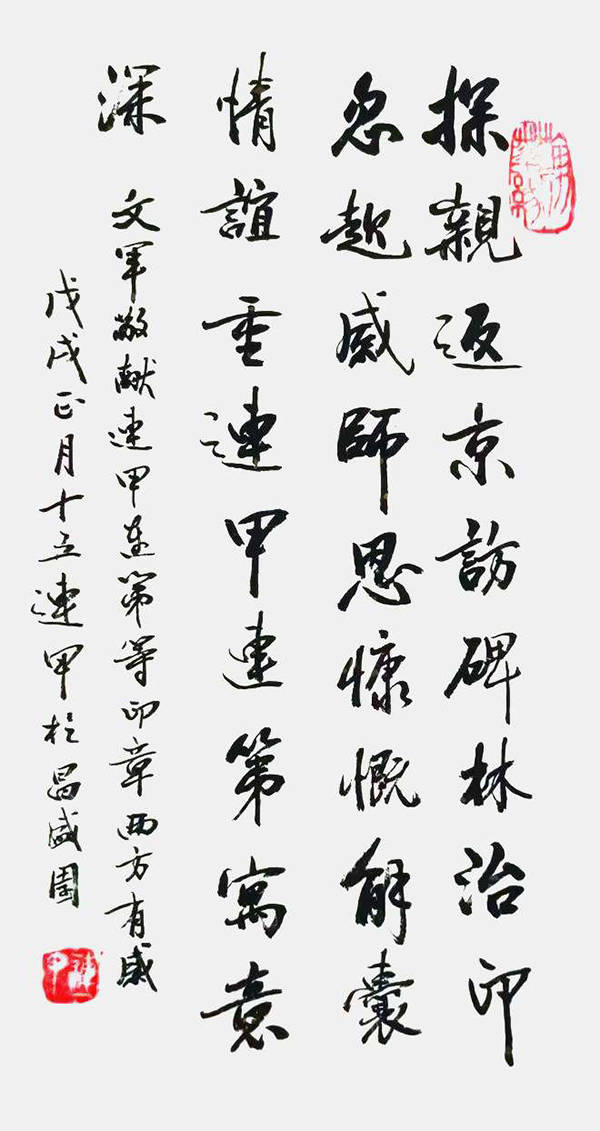 探親返京訪碑林治印
忽起感師恩慷慨解囊
情誼重連甲連第寓意
深 文軍敬献連甲連第等印章两方有感
戊戌正月十五連甲於昌盛園
連甲